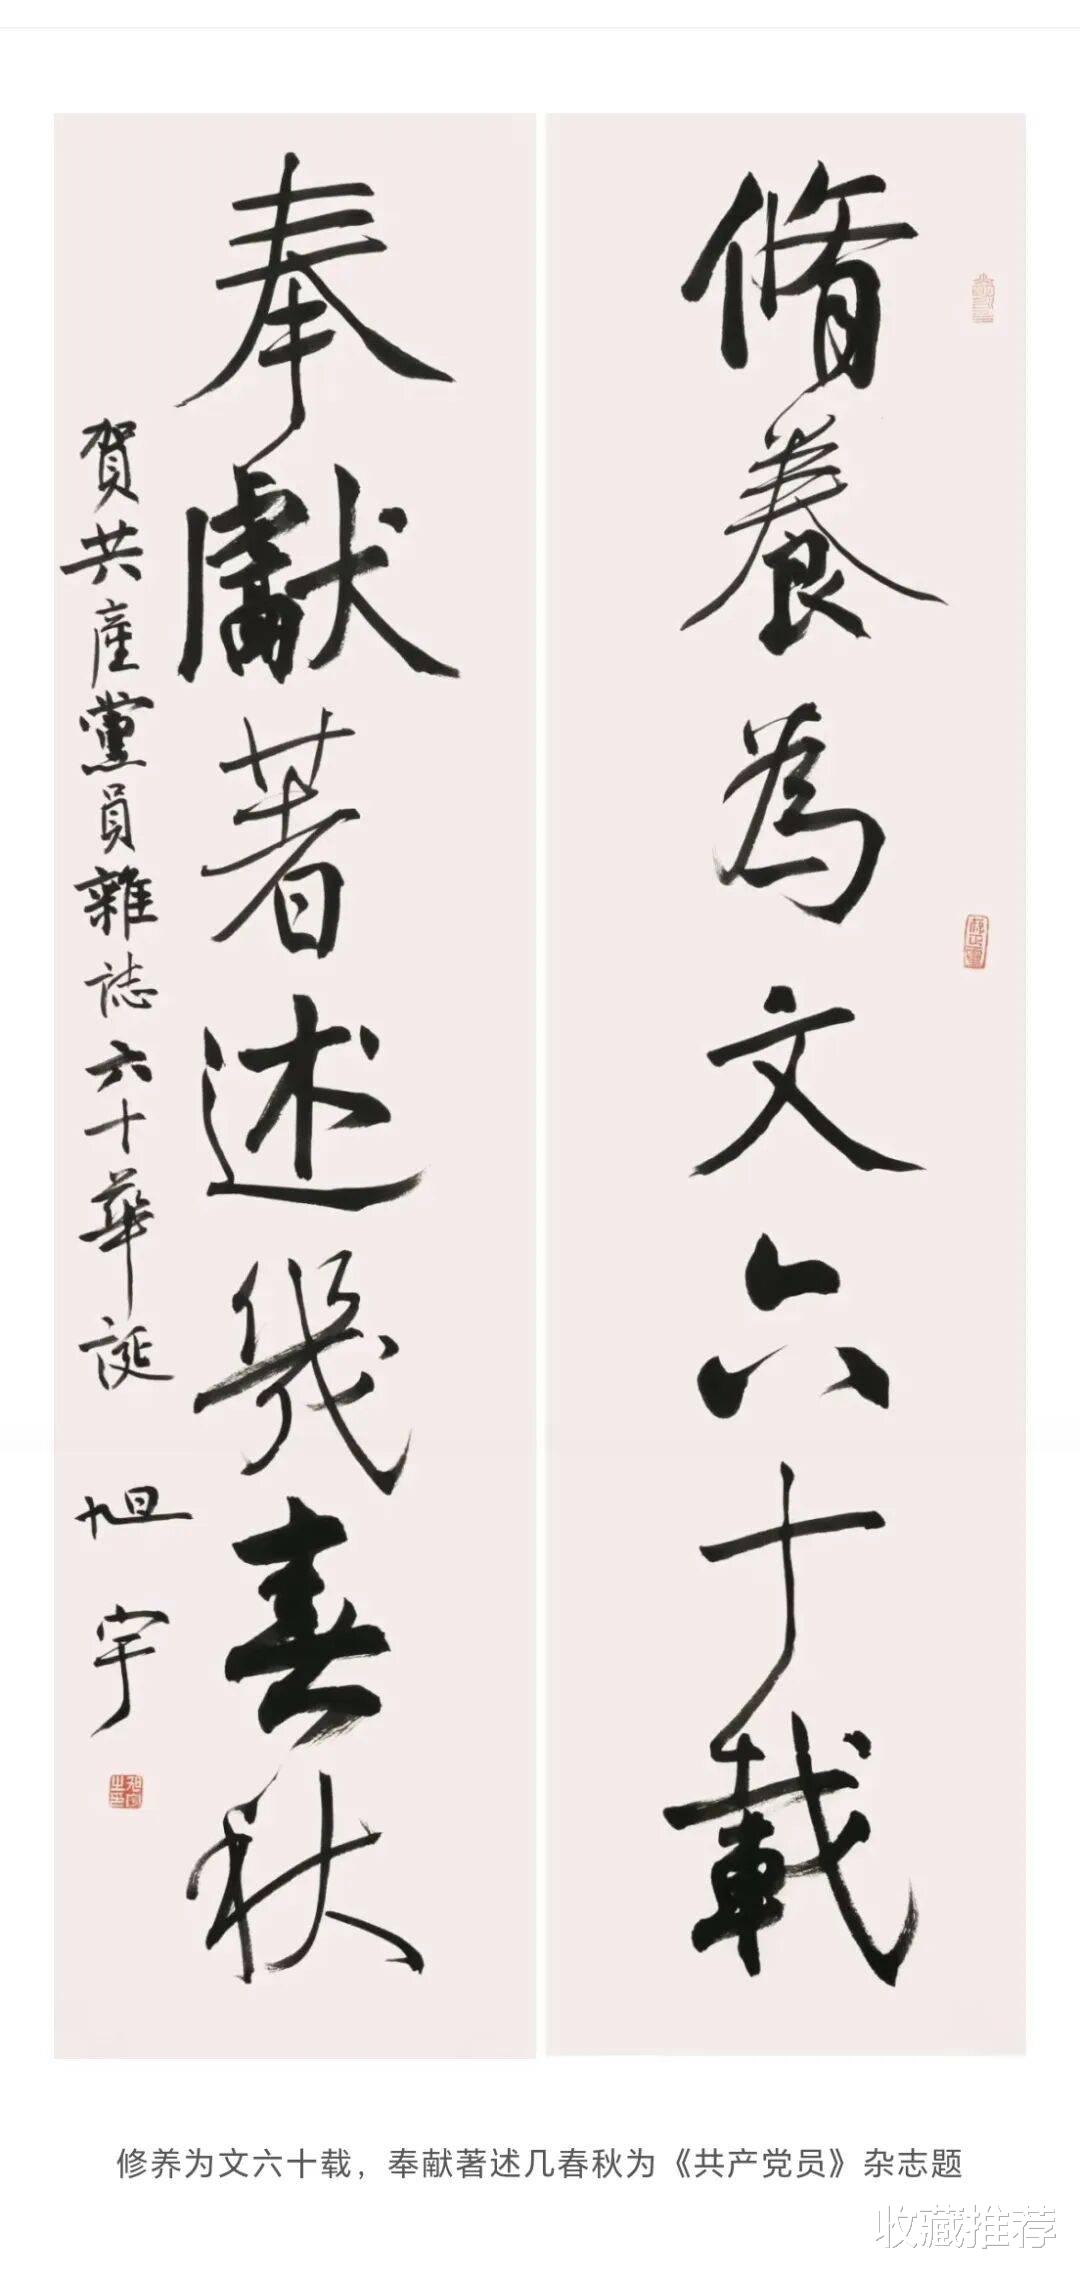 脩養為文六十載
奉獻著述幾春秋
賀共產黨員雜誌六十華誕
旭宇
修养为文六十载，奉献著述几春秋为《共产党员》杂志题
收藏推荐